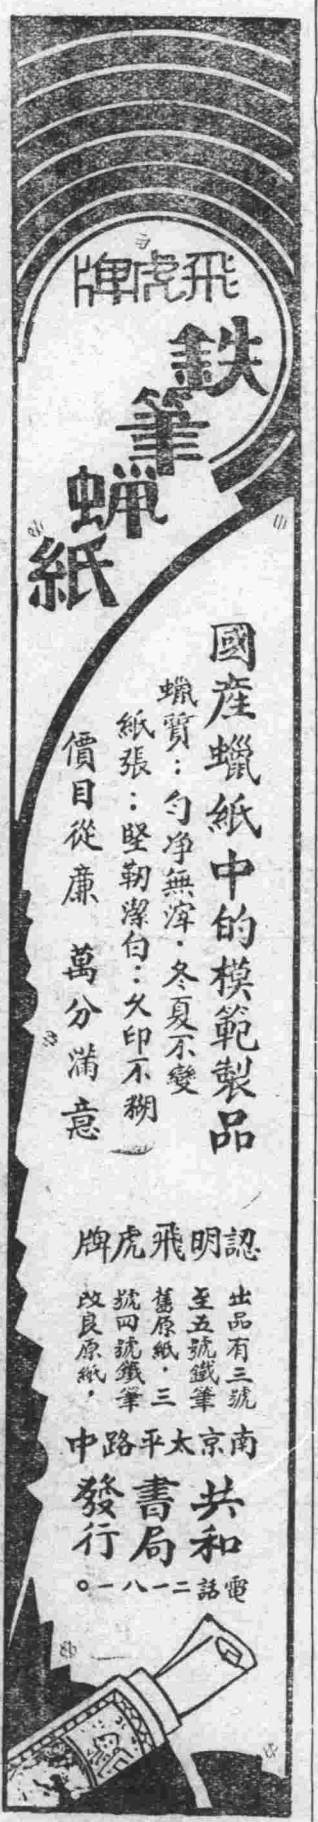 飛虎牌
鉄筆蝋紙
國産蠟紙中的模範製品
蠟質：勻净無滓．冬夏不變
紙張：堅韌潔白：久印不糊
價目從廉 萬分滿意
認明飛虎牌
出品有三號
至五號鐵筆
舊原紙．三
號四號鐵筆
改良原紙，
南京太平路中
共和
書局
發行
電話二一八一。